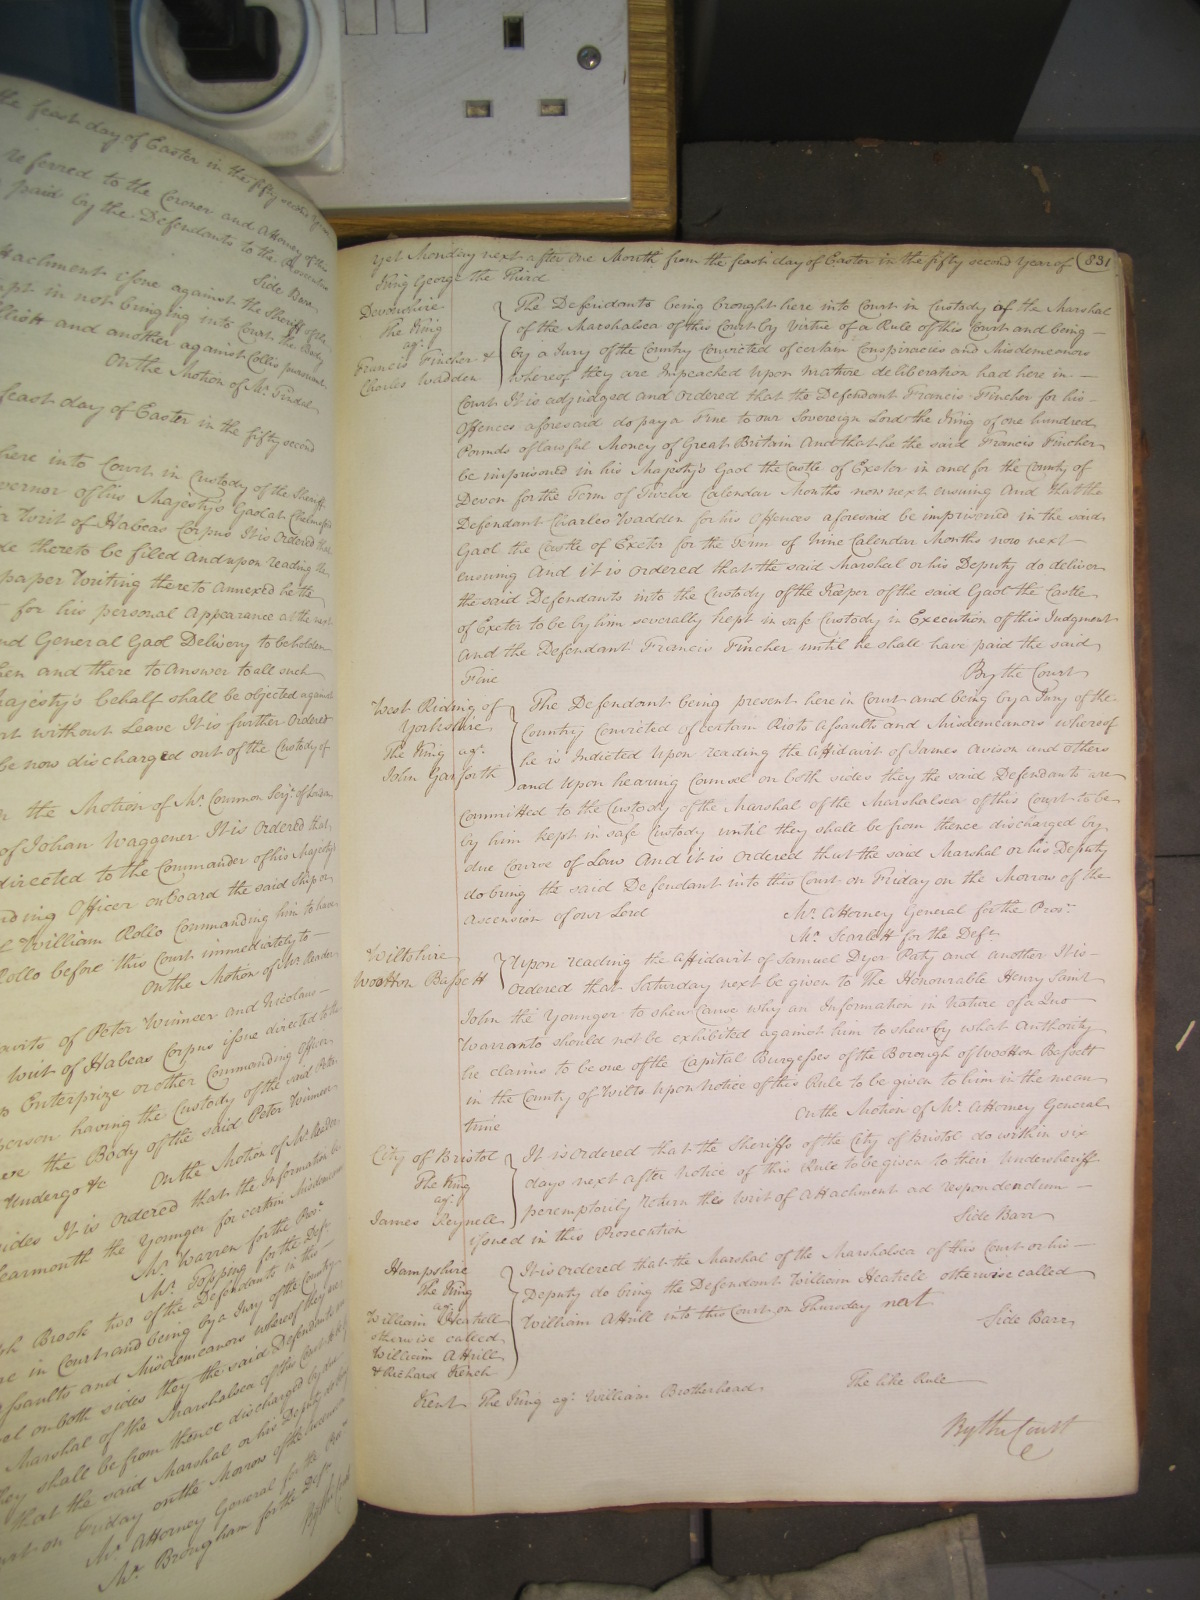 the feast day of Easter in the fifty second year
referred to the Coroner and Attorney of this
paid by the Defendants to the Prosecution
Side Barr
Attachment issue against the Sheriff of the
in not bringing into Court the Body
and another against Collis pursuant
On the Motion of Mr. Tindal
feast day of Easter in the fifty second
here into Court in Custody of the Sheriff
Governor of his Majesty's Gaol at Chelmsford
a Writ of Habeas Corpus It is Ordered that
thereto be filed and upon reading the
paper Writing thereto Annexed he the
for his personal Appearance at the next
and General Gaol Delivery to be holden
then and there to Answer to all such
Majesty's behalf shall be objected against
without Leave It is further Ordered
be now discharged out of the Custody of
the Motion of Mr. Common Serjt. of London
of Johan Waggener It is Ordered that
directed to the Commander of his Majesty's
Officer on board the said Ship or
William Rollo Commanding him to have
Rollo before this Court immediately to
On the Motion of Mr. Reader
of Peter Wimeer and Nicolaus
Writ of Habeas Corpus issue directed to the
Enterprize or other Commanding Officer
person having the Custody of the said Peter
the Body of the said Peter Wimeer
Undergo &c On the Motion of Mr. Reader
sides It is Ordered that the Information
the Younger for certain Misdemeanors
Mr. Warren for the Prosr.
Mr. Topping for the Deft.
Brook two of the Defendants in this
in Court and being by a Jury of the Country
Assaults and Misdemeanors whereof they are
on both sides they the said Defendants are
Marshal of the Marshalsea of this Court to be
they shall be from thence discharged by due
that the said Marshal or his Deputy do bring
on Friday on the Morrow of the Ascension
Mr. Attorney General for the Prosr.
Mr. Brougham for the Defts.
By the Court
Yet Monday next after one Month from the feast day of Easter in the fifty second Year of 831
King George the Third
Devonshire
The King
agt.
Francis Fincher &
Charles Wadden
The Defendants being brought here into Court in Custody of the Marshal
of the Marshalsea of this Court by virtue of a Rule of this Court and being
by a Jury of the Country Convicted of certain Conspiracies and Misdemeanors
whereof they are Impeached upon mature deliberation had here in
Court It is adjudged and ordered that the Defendant Francis Fincher for his
Offences aforesaid do pay a Fine to our Sovereign Lord the King of one hundred
Pounds of lawful Money of Great Britain And that he the said Francis Fincher
be imprisoned in his Majesty's Gaol the Castle of Exeter in and for the County of
Devon for the Term of Twelve Calendar Months now next ensuing And that the
Defendant Charles Wadden for his Offences aforesaid be imprisoned in the said
Gaol the Castle of Exeter for the Term of Nine Calendar Months now next
ensuing And it is ordered that the said Marshal or his Deputy do deliver
the said Defendants into the Custody of the Keeper of the said Gaol the Castle
of Exeter to be by him severally kept in safe Custody in Execution of this Judgment
And the Defendant Francis Fincher until he shall have paid the said
Fine By the Court
West Riding of
Yorkshire
The King agt.
John Garforth
The Defendant being present here in Court and being by a Jury of the
Country Convicted of certain Riots Assaults and Misdemeanors whereof
he is Indicted Upon reading the Affidavit of James Avison and others
and Upon hearing Counsel on both sides they the said Defendants are
Committed to the Custody of the Marshal of the Marshalsea of this Court to be
by him kept in safe Custody until they shall be from thence discharged by
due Course of Law And it is ordered that the said Marshal or his Deputy
do bring the said Defendant into this Court on Friday on the Morrow of the
Ascension of our Lord Mr. Attorney General for the Prosr.
Mr. Scarlett for the Deft.
Wiltshire
Wootton Bassett
Upon reading the Affidavit of Samuel Dyer Paty and another It is
Ordered that Saturday next be given to The Honourable Henry Saint
John the Younger to shew Cause why an Information in Nature of a Quo
Warranto should not be exhibited against him to shew by what Authority
he claims to be one of the Capital Burgesses of the Borough of Wootton Bassett
in the County of Wilts Upon Notice of this Rule to be given to him in the mean
time On the Motion of Mr. Attorney General
City of Bristol
The King
agt.
James Reynell
It is ordered that the Sheriffs of the City of Bristol do within six
days next after Notice of this Rule to be given to their Undersheriff
peremptorily return the Writ of Attachment ad respondendum
issued in this Prosecution Side Barr
Hampshire
The King
agt.
William Heatell
otherwise called
William Attrill
& Richard Kench
It is ordered that the Marshal of the Marshalsea of this Court or his
Deputy do bring the Defendant William Heatele otherwise called
William Attrill into this Court on Thursday next
Side Barr
Kent The King agt. William Brotherhead The like Rule
By the Court